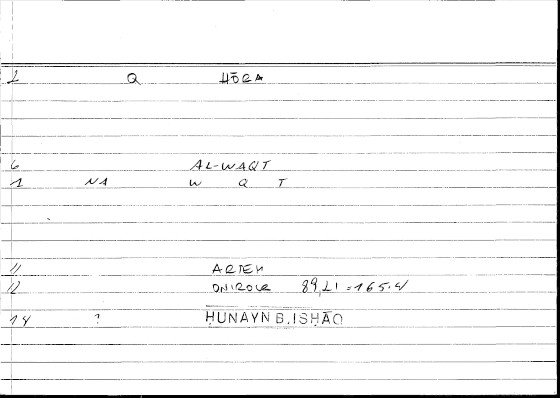 1 Q HŌRA
6 AL-WAQT
1 NA W Q T
11 ARTEM
12 ONIROCR 89,21 = 165.4
14 ? ḤUNAYN B. ISḤĀQ